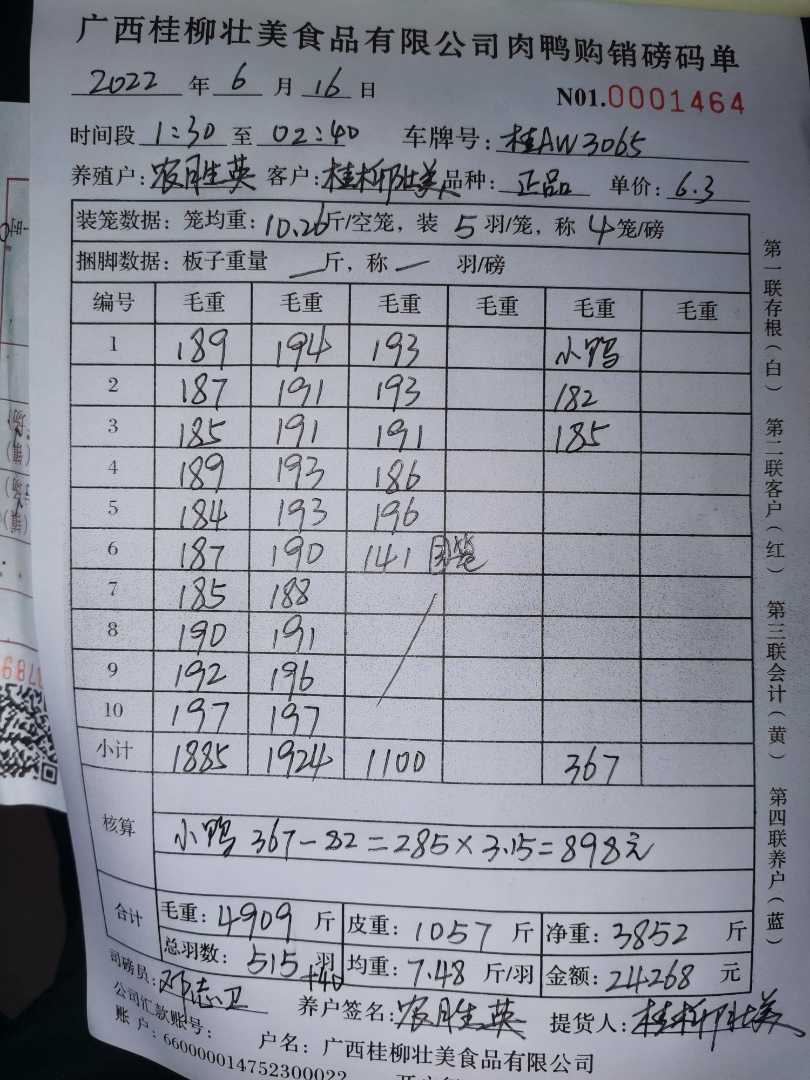 广西桂柳壮美食品有限公司肉鸭购销磅码单
2022 年 6 月 16 日 N01.0001464
时间段 1:30 至 02:40 车牌号: 桂AW3065
养殖户: 农胜英 客户: 桂柳壮美 品种: 正品 单价: 6.3
装笼数据: 笼均重: 10.26斤/空笼, 装 5 羽/笼, 称 4 笼/磅
捆脚数据: 板子重量 — 斤, 称 — 羽/磅
编号 毛重 毛重 毛重 毛重 毛重 毛重
1 189 194 193 小鸭
2 187 191 193 182
3 185 191 191 185
4 189 193 186
5 184 193 196
6 187 190 141
7 185 188
8 190 191
9 192 196
10 197 197
小计 1885 1924 1100 367
核算 小鸭 367-82=285×3.15=898元
合计 毛重: 4909 斤 皮重: 1057 斤 净重: 3852 斤
总羽数: 515 羽 均重: 7.48 斤/羽 金额: 24268 元
+40
司磅员: 邓志卫 养户签名: 农胜英 提货人: 桂柳壮美
公司汇款账号:
账 户: 660000014752300022 户名: 广西桂柳壮美食品有限公司
第一联存根(白) 第二联客户(红) 第三联会计(黄) 第四联养户(蓝)